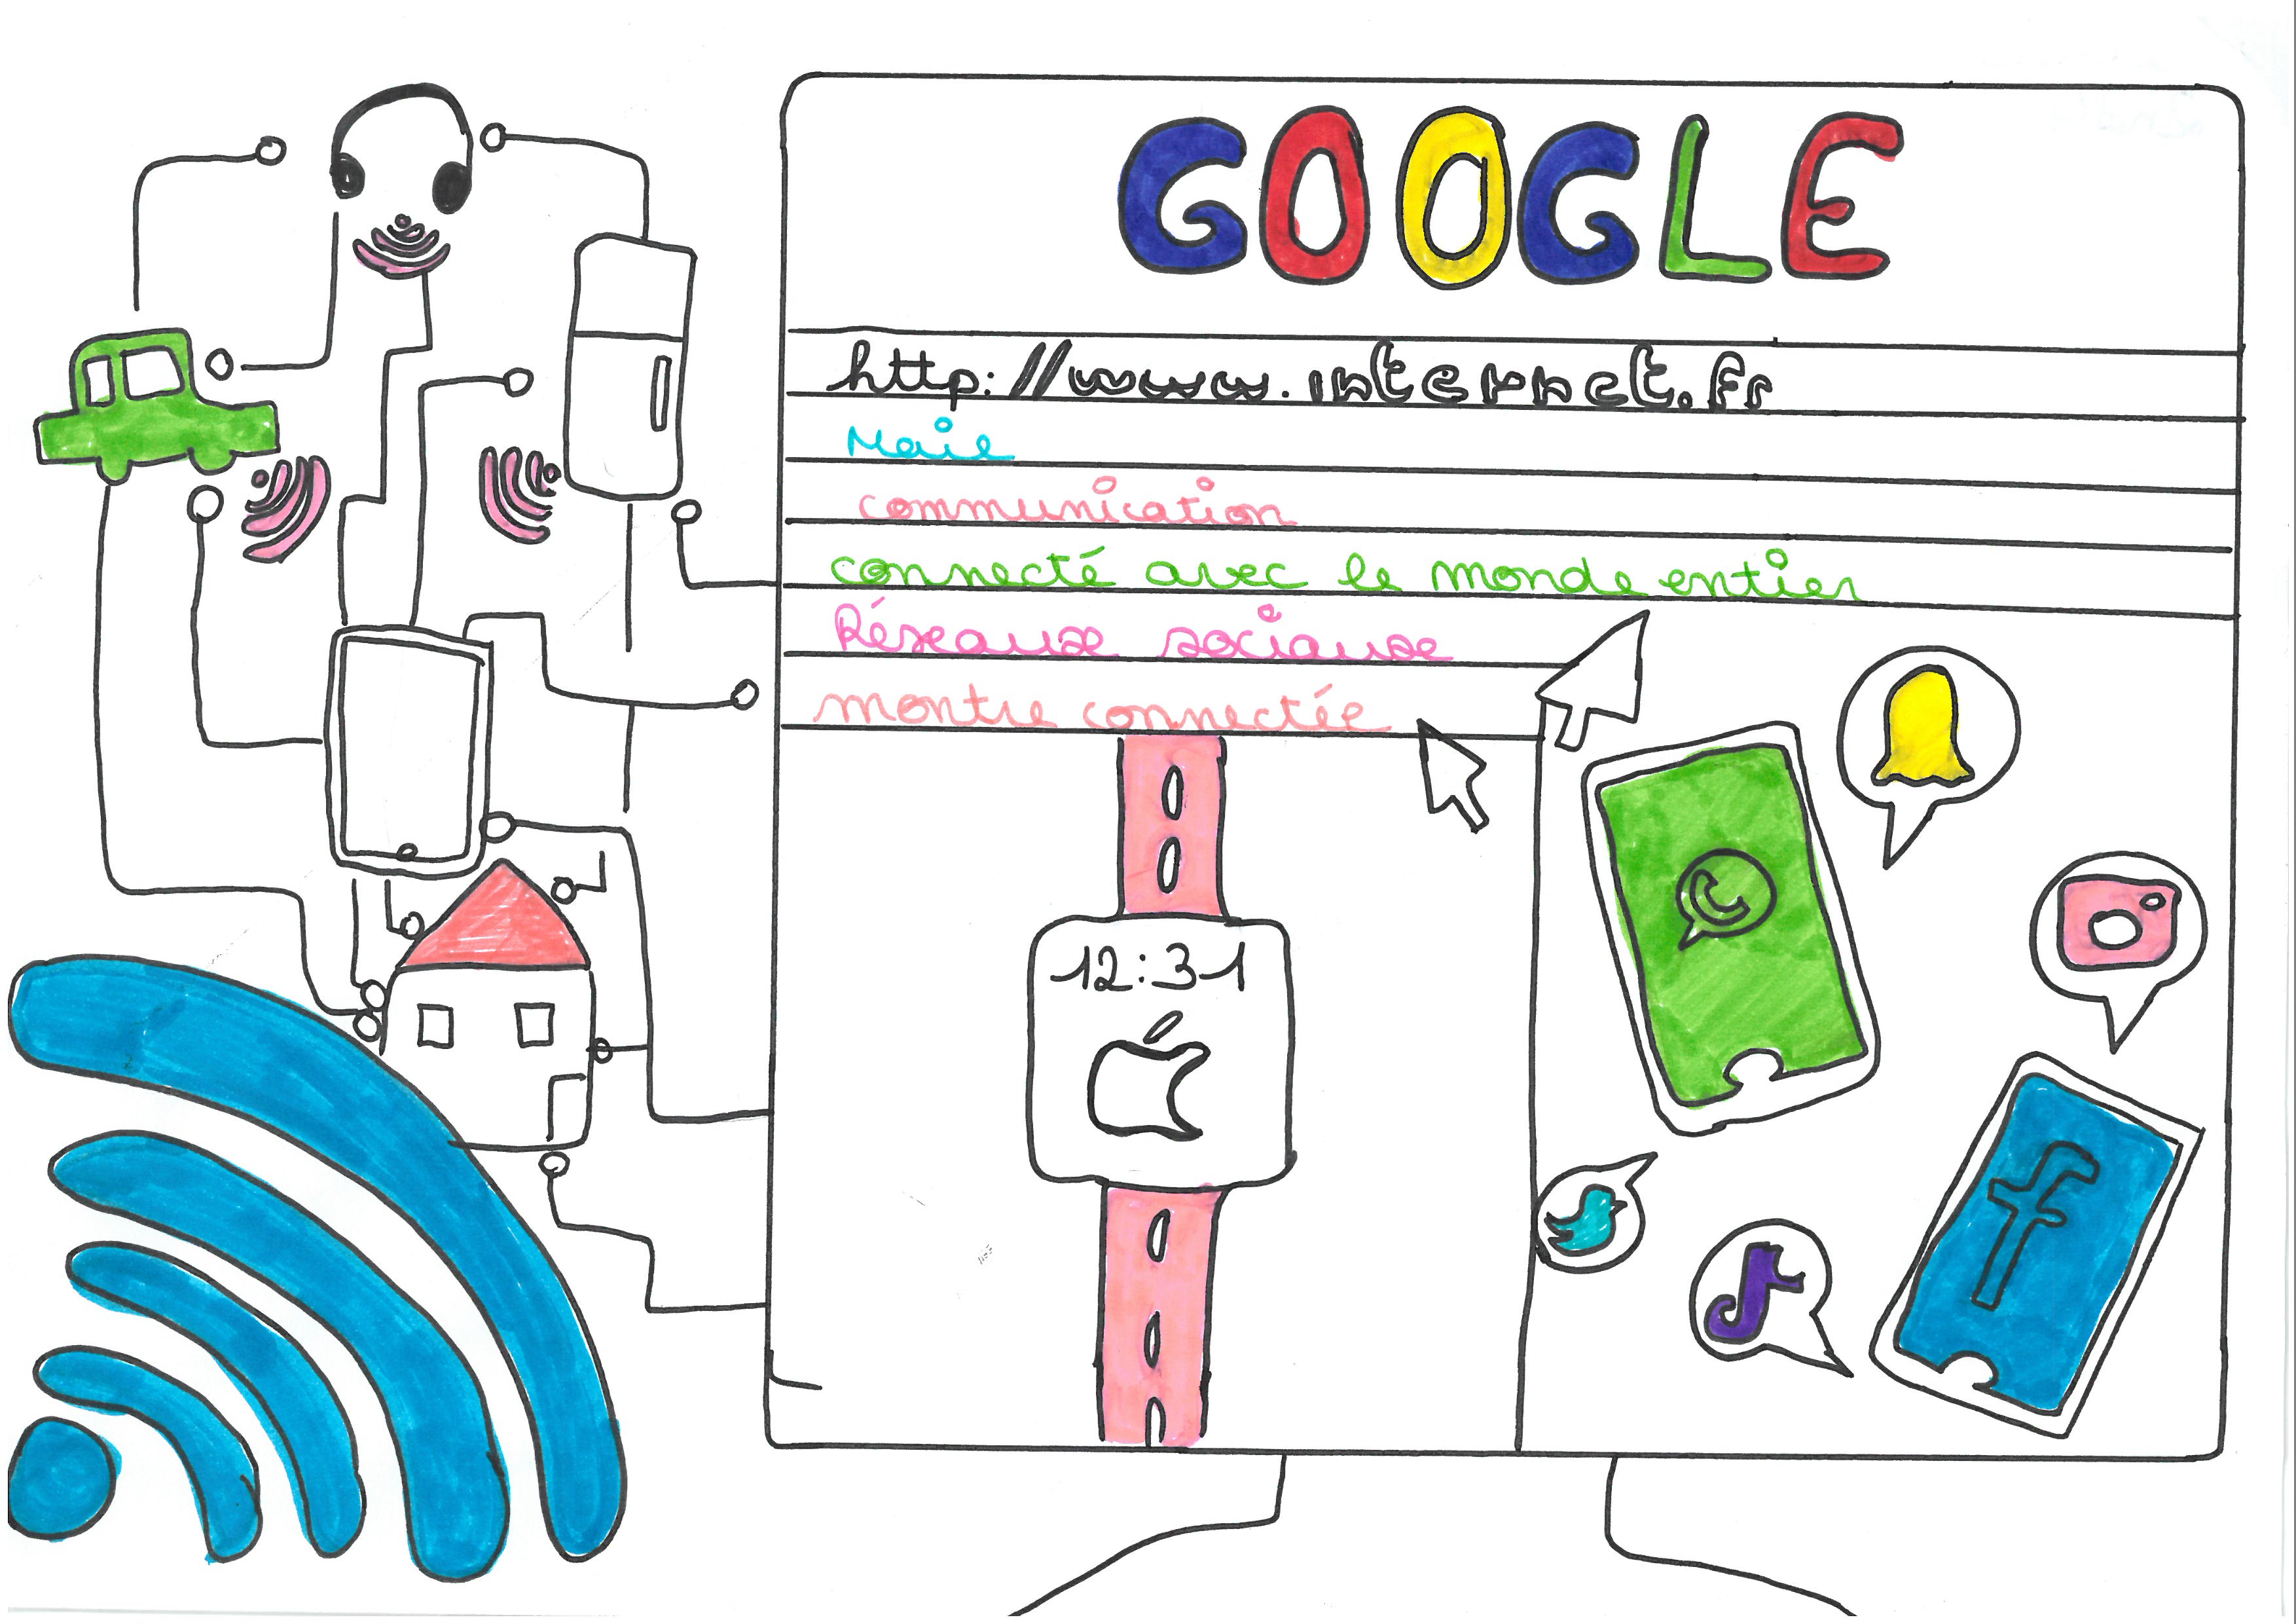 GOOGLE
http://www.internet.fr
Mail
communication
connecté avec le monde entier
Réseaux sociaux
montre connectée
12:31